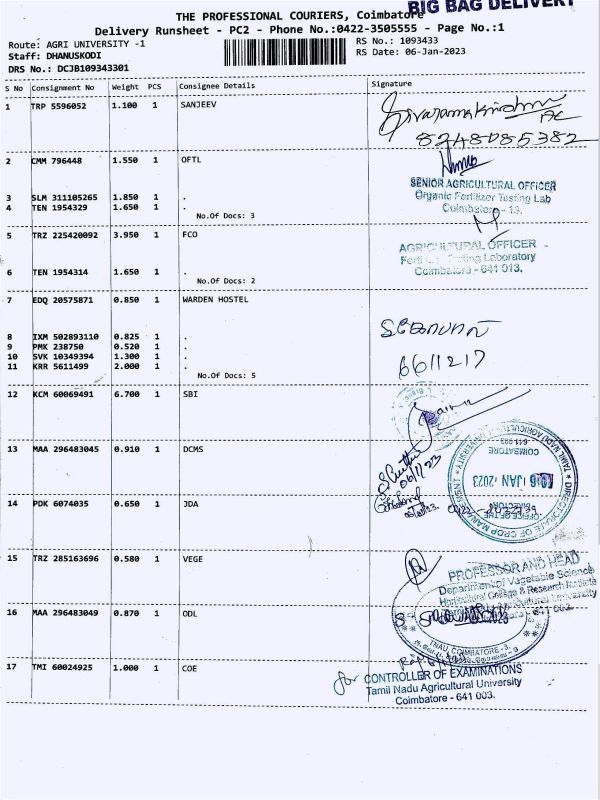 BIG BAG DELIVERY
THE PROFESSIONAL COURIERS, Coimbatore
Delivery Runsheet - PC2 - Phone No.:0422-3505555 - Page No.:1
Route: AGRI UNIVERSITY -1
RS No.: 1093433
Staff: DHANUSKODI
RS Date: 06-Jan-2023
DRS No.: DCJB109343301
S No Consignment No Weight PCS Consignee Details Signature
1 TRP 5596052 1.100 1 SANJEEV
8248085382
2 CMM 796448 1.550 1 OFTL
SENIOR AGRICULTURAL OFFICER
Organic Fertilizer Testing Lab
Coimbatore - 13.
3 SLM 311105265 1.850 1 .
4 TEN 1954329 1.650 1 .
No.Of Docs: 3
5 TRZ 225420092 3.950 1 FCO
AGRICULTURAL OFFICER
Testing Laboratory
Coimbatore - 641 013.
6 TEN 1954314 1.650 1 .
No.Of Docs: 2
7 EDQ 20575871 0.850 1 WARDEN HOSTEL
8 IXM 502893110 0.825 1 .
9 PMK 238750 0.520 1 .
10 SVK 10349394 1.300 1 .
11 KRR 5611499 2.000 1 .
No.Of Docs: 5
12 KCM 60069491 6.700 1 SBI
13 MAA 296483045 0.910 1 DCMS
06/1/23
DIRECTORATE OF CROP MANAGEMENT
TAMIL NADU AGRICULTURAL UNIVERSITY
COIMBATORE
641 003
JAN 2023
OFFICE OF THE
DIRECTOR
14 PDK 6074035 0.650 1 JDA
15 TRZ 285163696 0.580 1 VEGE
PROFESSOR AND HEAD
Department of Vegetable Science
Horticultural College & Research Institute
Agricultural University
641 003.
16 MAA 296483049 0.870 1 ODL
TNAU, COIMBATORE - 3.
17 TMI 60024925 1.000 1 COE
for CONTROLLER OF EXAMINATIONS
Tamil Nadu Agricultural University
Coimbatore - 641 003.